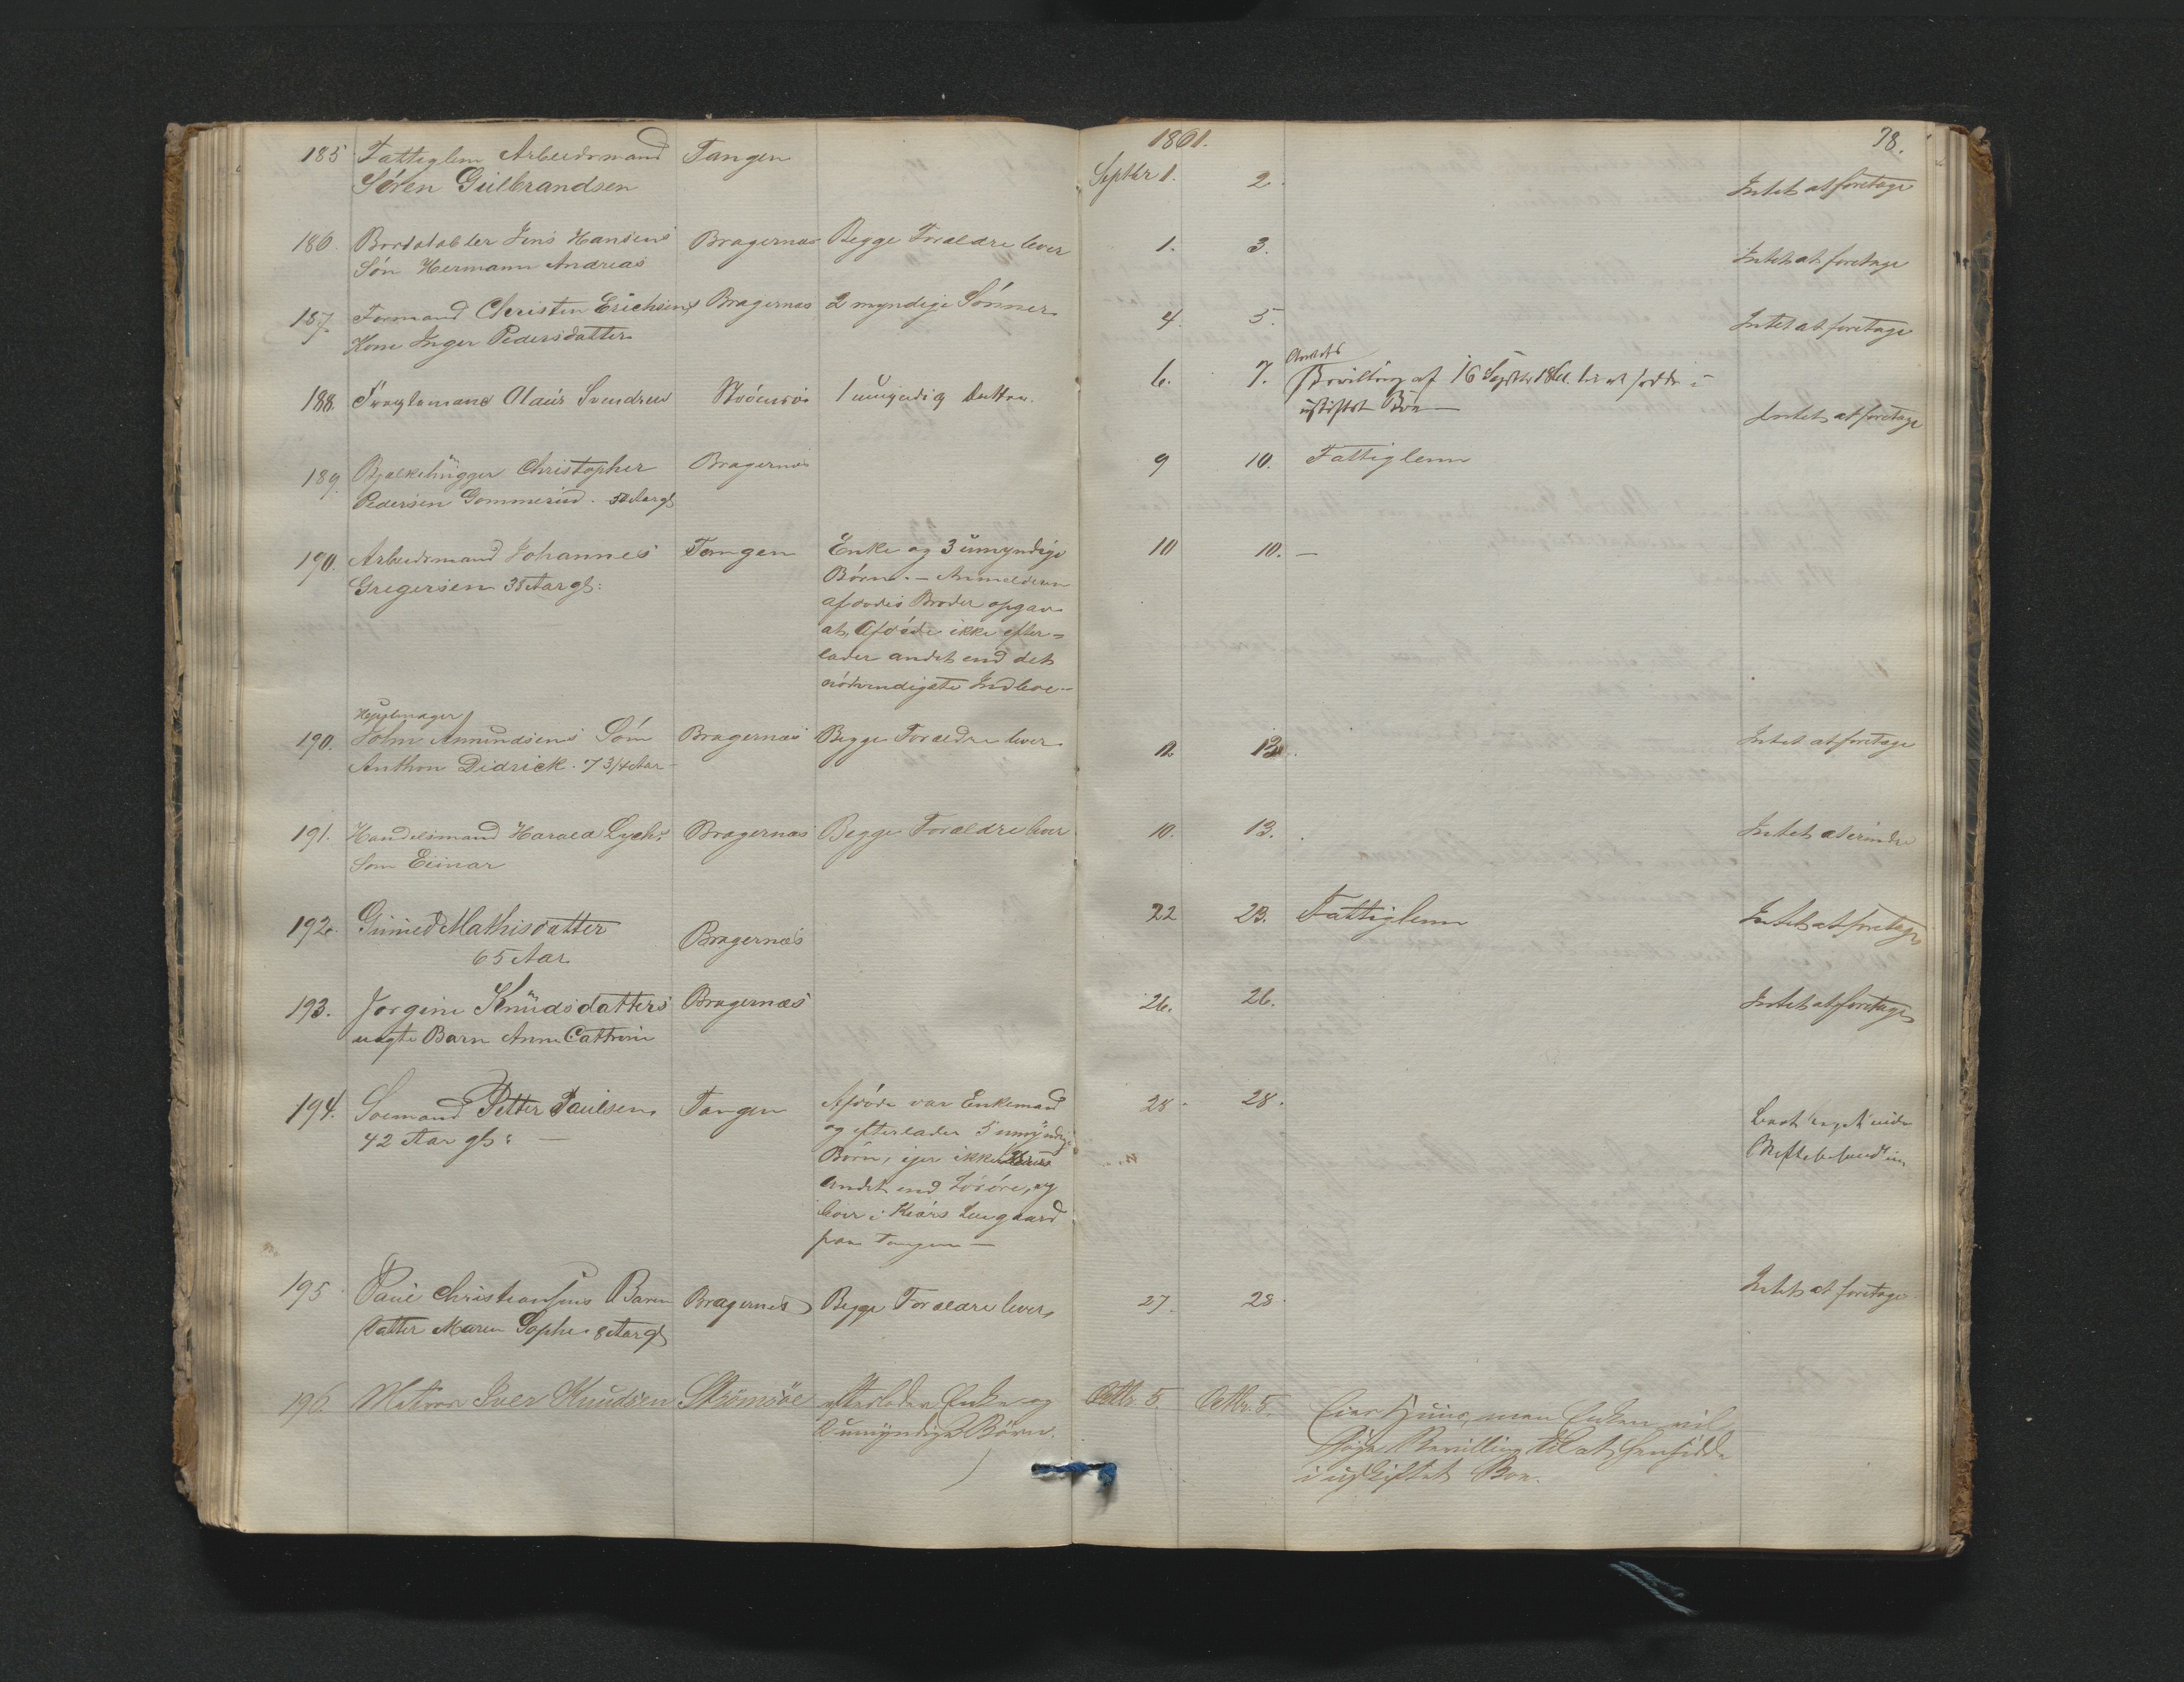 1861.
78.
185 Fattiglem Arbeidsmand Tangen Septbr 1. 2. Intet at foretage
Sören Gulbrandsen
186. Bordstabler Jens Hansens Bragernæs Begge Forældre lever 1. 3. Intet at foretage
Sön Hermann Andreas
187. Formand Christen Erichsens Bragernæs 2 myndige Sönner 4. 5. Intet at foretage
Kone Inger Pedersdatter
188. Olaus Svendsen Strömsö 1 umyndig Datter. 6. 7. Amtets Bevilling af 16 Septbr 1861 til at sidde i
uskiftet Bo — Intet at foretage
189. Bjelkehugger Christopher Bragernæs 9 10. Fattiglem
Pedersen Gommerud. 50 Aar gl
190. Arbeidsmand Johannes Tangen Enke og 3 umyndige 10 10. —
Gregersen 38 Aar gl: Börn. — Anmelderen
afdödes Broder opgav
at Afdöde ikke efter=
lader andet end det
nödvendigste Indboe —
190. John Amundsens Sön Bragernæs Begge Forældre lever 12 13. Intet at foretage
Anthon Didrick. 7 3/4 Aar —
191. Handelsmand Harald Lychs Bragernæs Begge Forældre lever 10. 13. Intet at erindre
Sön Einar
192. Gunild Mathisdatter Bragernæs 22 23. Fattiglem Intet at foretage
65 Aar
193. Jorgine Knudsdatters Bragernæs 26. 26. Intet at foretage
uægte Barn Anne Cathrine
194. Soemand Petter Paulsen Tangen Afdöde var Enkemand 28. 28.
42 Aar gl: — og efterlader 5 umyndige
Börn, ejer ikke Huus
andet end Lösöre, og
boer i Kiærs Leiegaard
paa Tangen —
195. Paul Christiansens Barn Bragernæs Begge Forældre lever 27. 28. Intet at foretage
Datter Maren Sophie 8 Aar gl
196. Matros Iver Knudsen Strömsöe efterlader Enke og Octbr. 5. Octbr. 5. Eier Huus, men Enken vil
2 umyndige Börn. söge Bevilling til at hensidde
i uskiftet Boe.